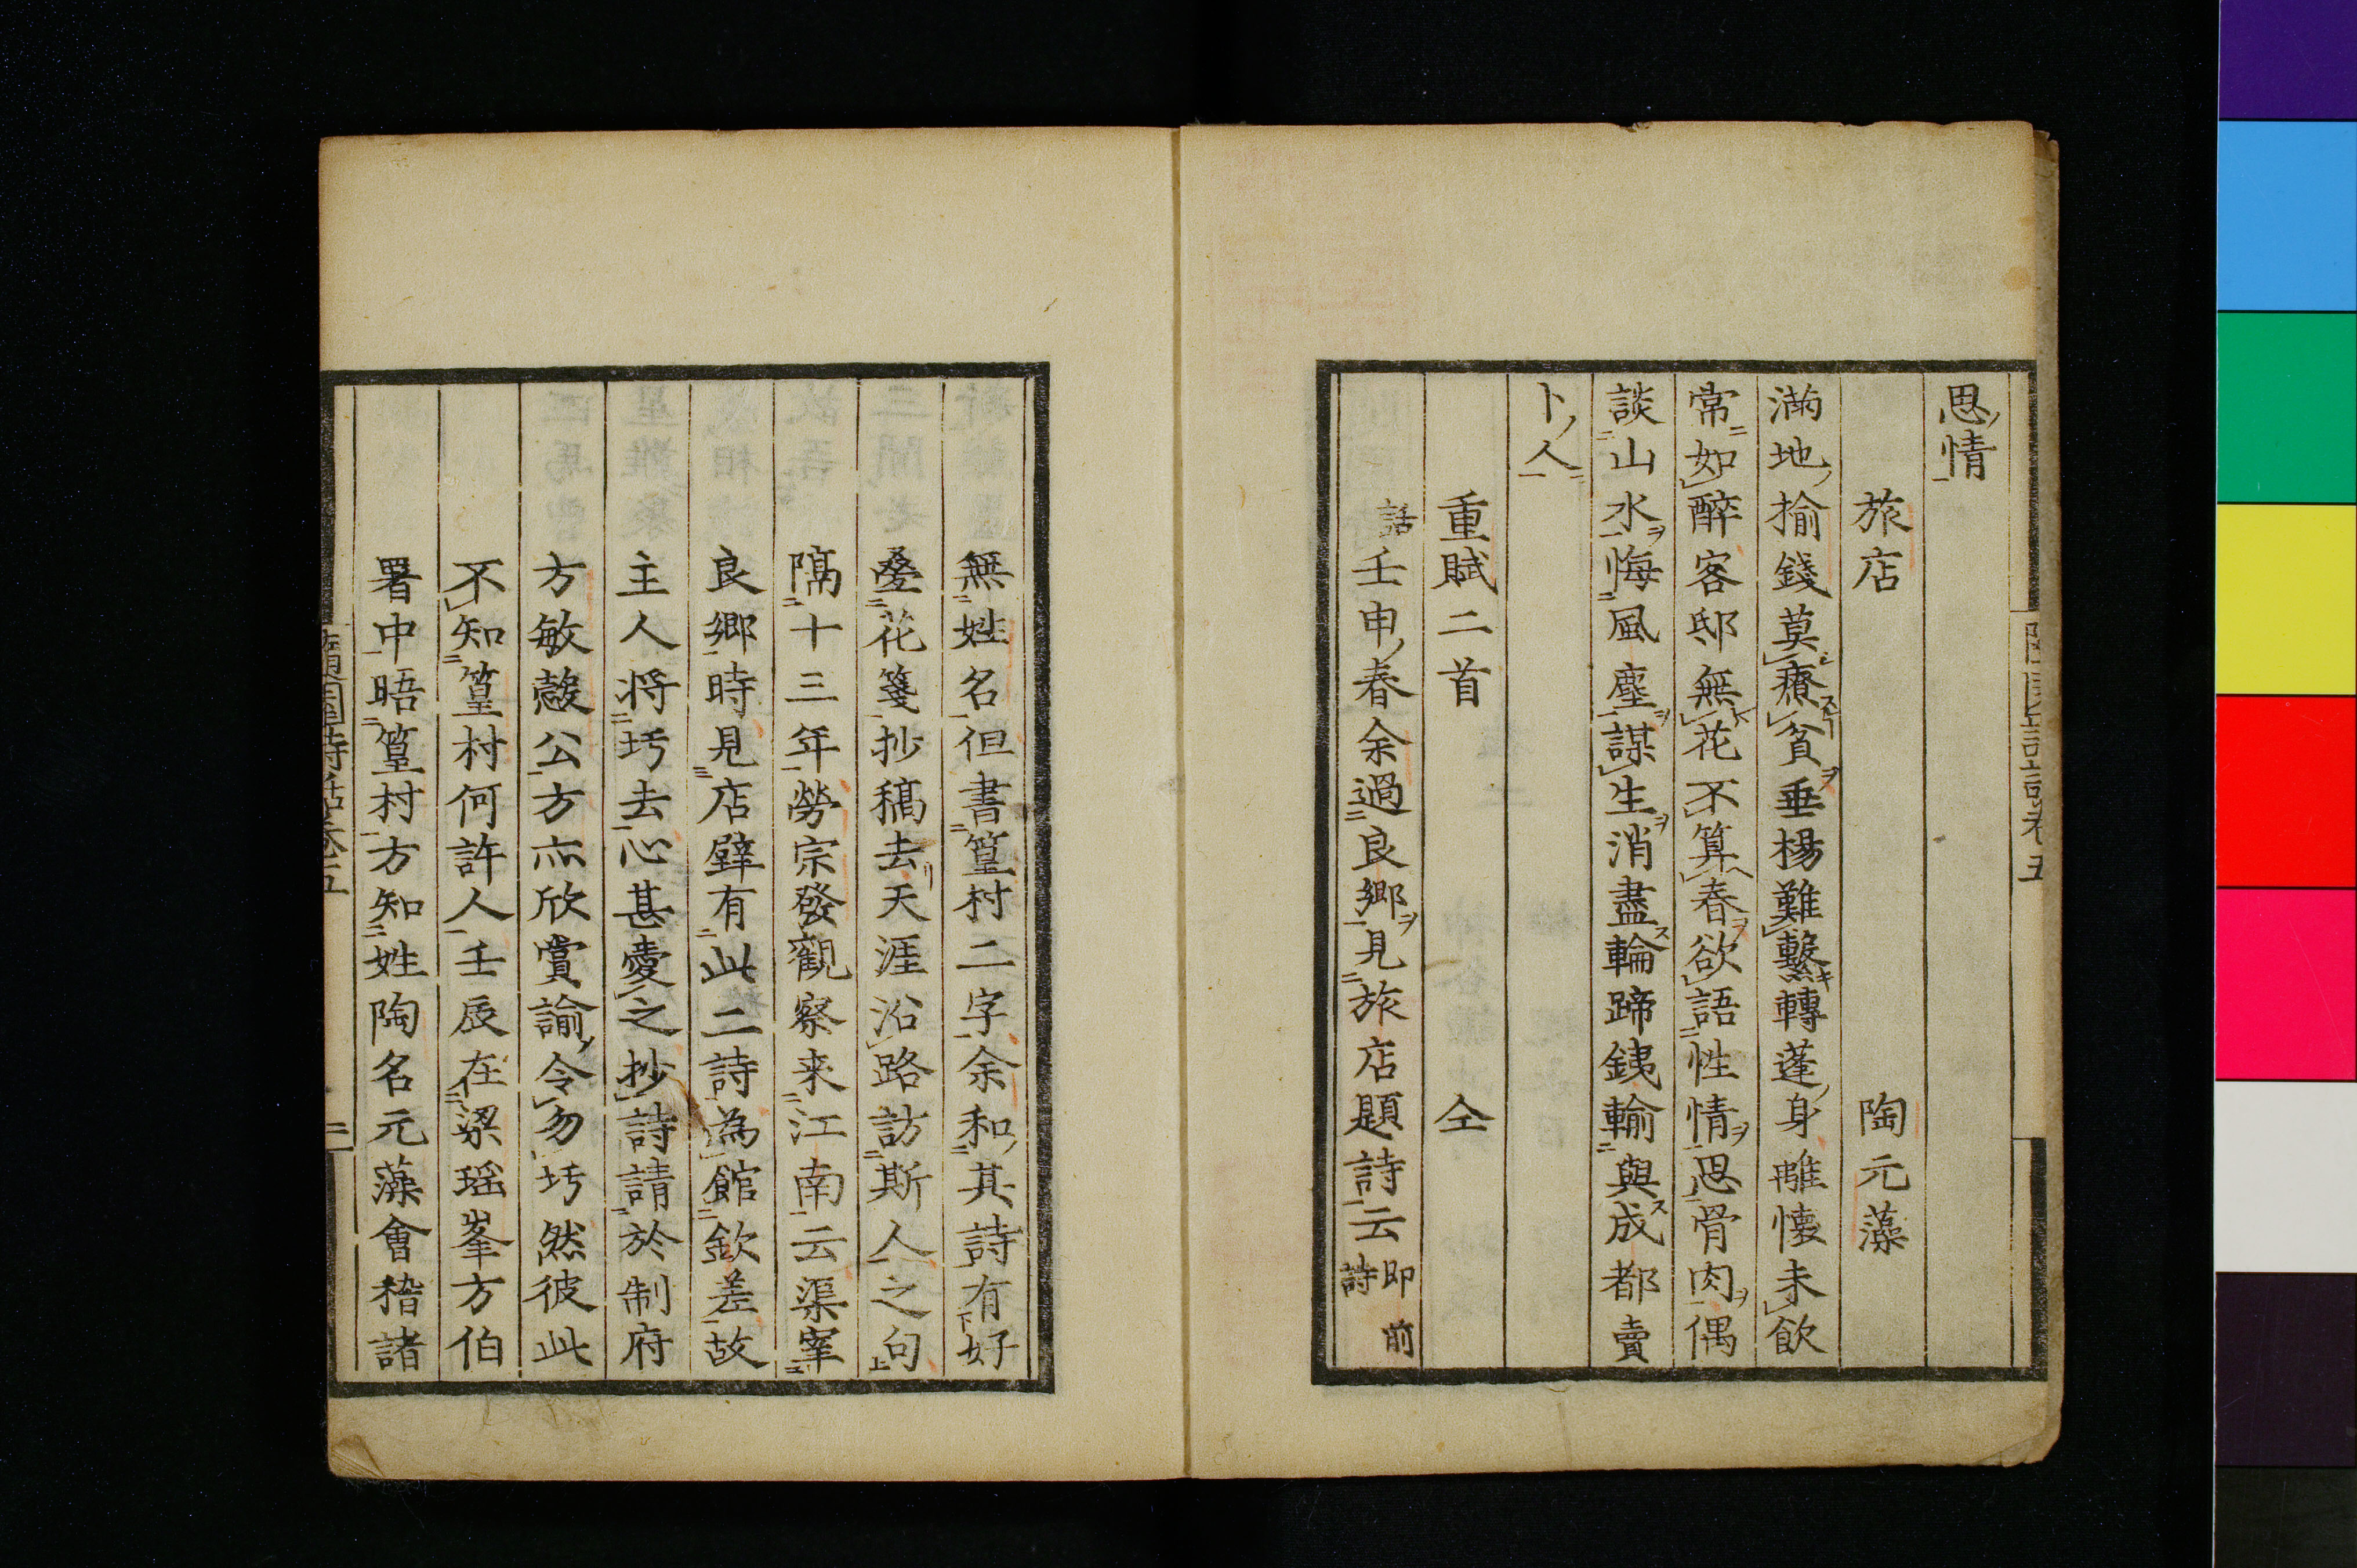 思情
旅店 陶元藻
滿地揄錢莫療貧垂楊難繫轉蓬身離懐未飲
常如醉客邸無花不算春欲語性情思骨肉偶
談山水悔風塵謀生消盡輪蹄銕輸與成都賣
卜人
重賦二首 仝
話 壬申春余過良郷見旅店題詩云 即前詩
無姓名但書篁村二字余和其詩有好
疊花箋抄稿去天涯沿路訪斯人之句
隔十三年勞宗發觀察来江南云渠宰
良郷時見店壁有此二詩為館欽差故
主人将圬去心甚愛之抄詩請於制府
方敏慤公方亦欣賞諭令勿圬然彼此
不知篁村何許人壬辰在梁瑶峯方伯
署中晤篁村方知姓陶名元藻會稽諸
隨園詩話卷五 二